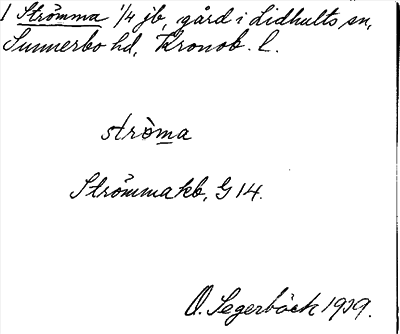 1 Strömma 1/4 jb, gård i Lidhults sn,
Sunnerbo hd, Kronob. l.
stròma
Strömma kb, G 14.
O. Segerbäck 1929.